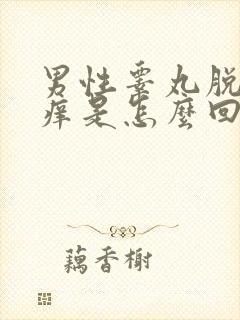 男性睾丸脱
痒是怎麼回
藕香榭